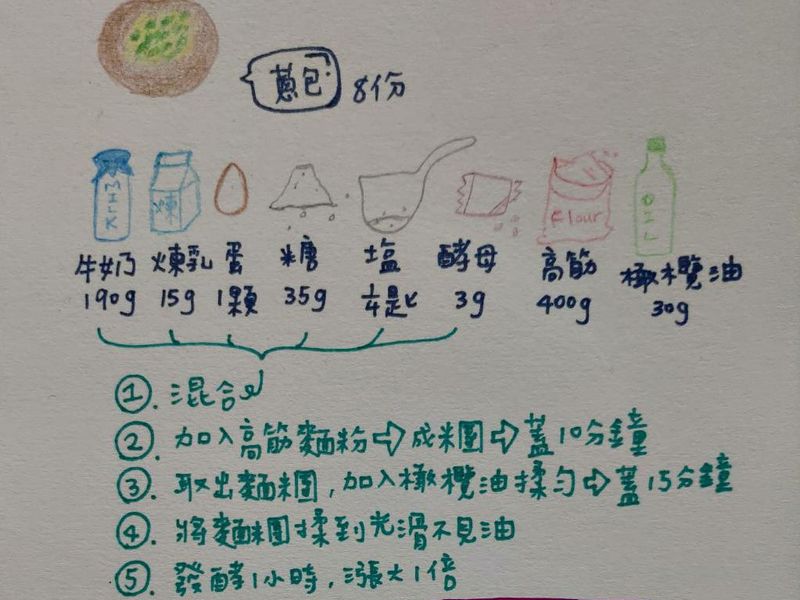 蔥包 8份
MILK 煉 flour OIL
牛奶 煉乳 蛋 糖 塩 酵母 高筋 橄欖油
190g 15g 1顆 35g ¼匙 3g 400g 30g
①. 混合
②. 加入高筋麵粉⇨成糰⇨蓋10分鐘
③. 取出麵糰,加入橄欖油揉勻⇨蓋15分鐘
④. 將麵糰揉到光滑不見油
⑤. 發酵1小時,漲大1倍